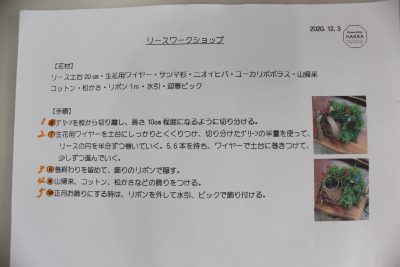 リースワークショップ
2020.12.3
HAKKA
【花材】
リース土台20㎝・生花用ワイヤー・サツマ杉・ニオイヒバ・ユーカリポポラス・山帰来
コットン・松かさ・リボン1ｍ・水引・迎春ピック
【手順】
1 グリーンを枝から切り離し、長さ10㎝程度になるように切り分ける。
2 生花用ワイヤーを土台にしっかりとくくりつけ、切り分けたグリーンの半量を使って、
リースの円を半分ずつ巻いていく。5.6本を持ち、ワイヤーで土台に巻きつけて、
少しずつ進んでいく。
3 巻終わりを留めて、飾りのリボンで隠す。
4 山帰来、コットン、松かさなどの飾りをつける。
5 正月お飾りにする時は、リボンを外して水引、ピックで飾り付ける。